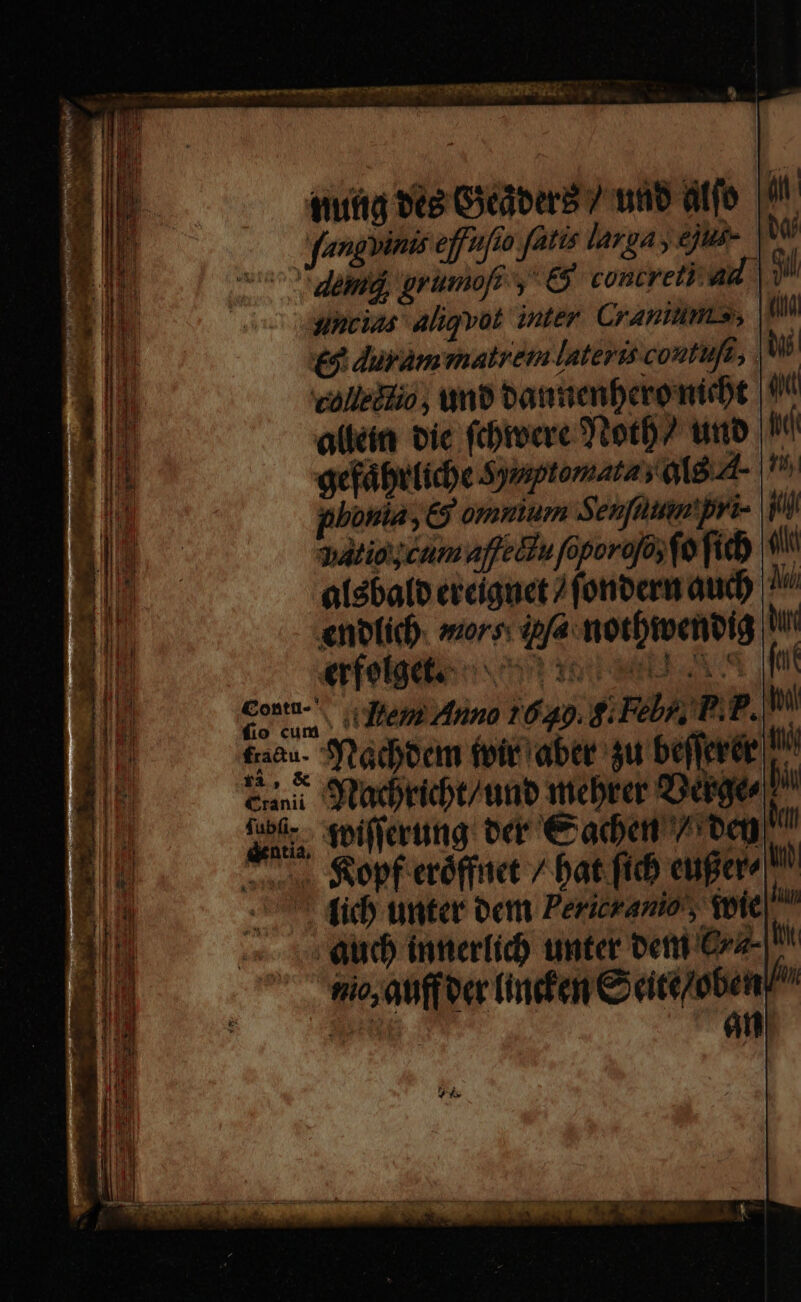 nung des Geåders / und alſo
ſangvinis effuſio ſatis larga, ejus-
demq́; grumoſi, & concreti ad
uncias aliqvot inter Cranium,
& duram matrem lateris contuſi,
collectio, und dannenhero nicht
allein die ſchwere Noth / und
gefåhrliche Symptomata, als A-
phonia, & omnium Senſuum pri-
vatio, cum affectu ſoporoſo, ſo ſich
alsbald ereignet / ſondern auch
endlich mors ipſa nothwendig
erfolget.
Item Anno 1649. 8. Febr. P. P.
Nachdem wir aber zu beſſerer
Nachricht / und mehrer Verge⸗
wiſſerung der Sachen / den
Kopf erôffnet / hat ſich eußer⸗
lich unter dem Pericranio, wie
auch innerlich unter dem Cra-
nio, auff der lincken Seite / oben
an
Contu-
ſio cum
fractu-
râ, &
Cranii
ſubſi-
dentia.